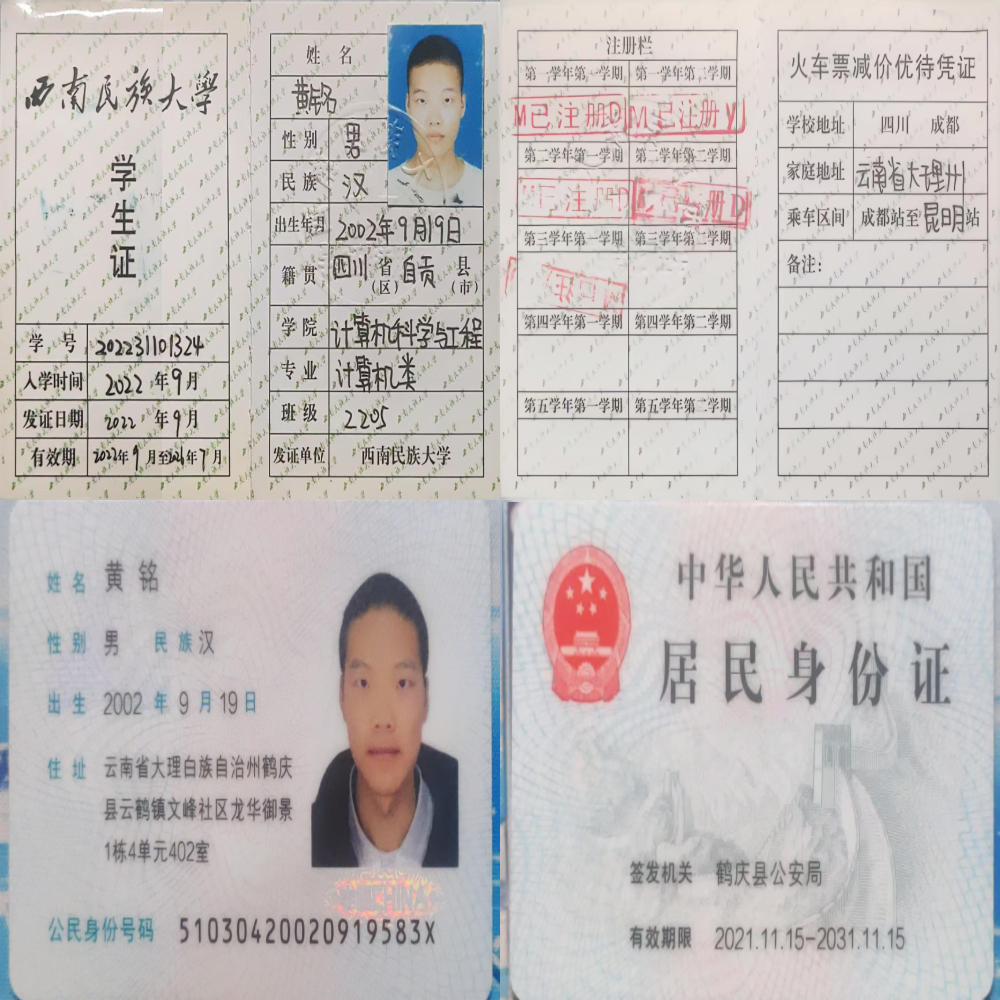 西南民族大学
学生证
学号 202231101324
入学时间 2022 年 9 月
发证日期 2022 年 9 月
有效期 2022年 9 月至2026年 7 月
姓名
黄铭
性别 男
民族 汉
出生年月 2002年9月19日
籍贯 四川 省(区) 自贡 县(市)
学院 计算机科学与工程
专业 计算机类
班级 2205
发证单位 西南民族大学
注册栏
第一学年第一学期 第一学年第二学期
M已注册D M已注册Y
第二学年第一学期 第二学年第二学期
第三学年第一学期 第三学年第二学期
第四学年第一学期 第四学年第二学期
第五学年第一学期 第五学年第二学期
火车票减价优待凭证
学校地址 四川 成都
家庭地址 云南省大理州
乘车区间 成都站至昆明站
备注:
姓名 黄铭
性别 男 民族 汉
出生 2002 年 9 月 19 日
住址 云南省大理白族自治州鹤庆
县云鹤镇文峰社区龙华御景
1栋4单元402室
公民身份号码 51030420020919583X
中华人民共和国
居民身份证
签发机关 鹤庆县公安局
有效期限 2021.11.15-2031.11.15